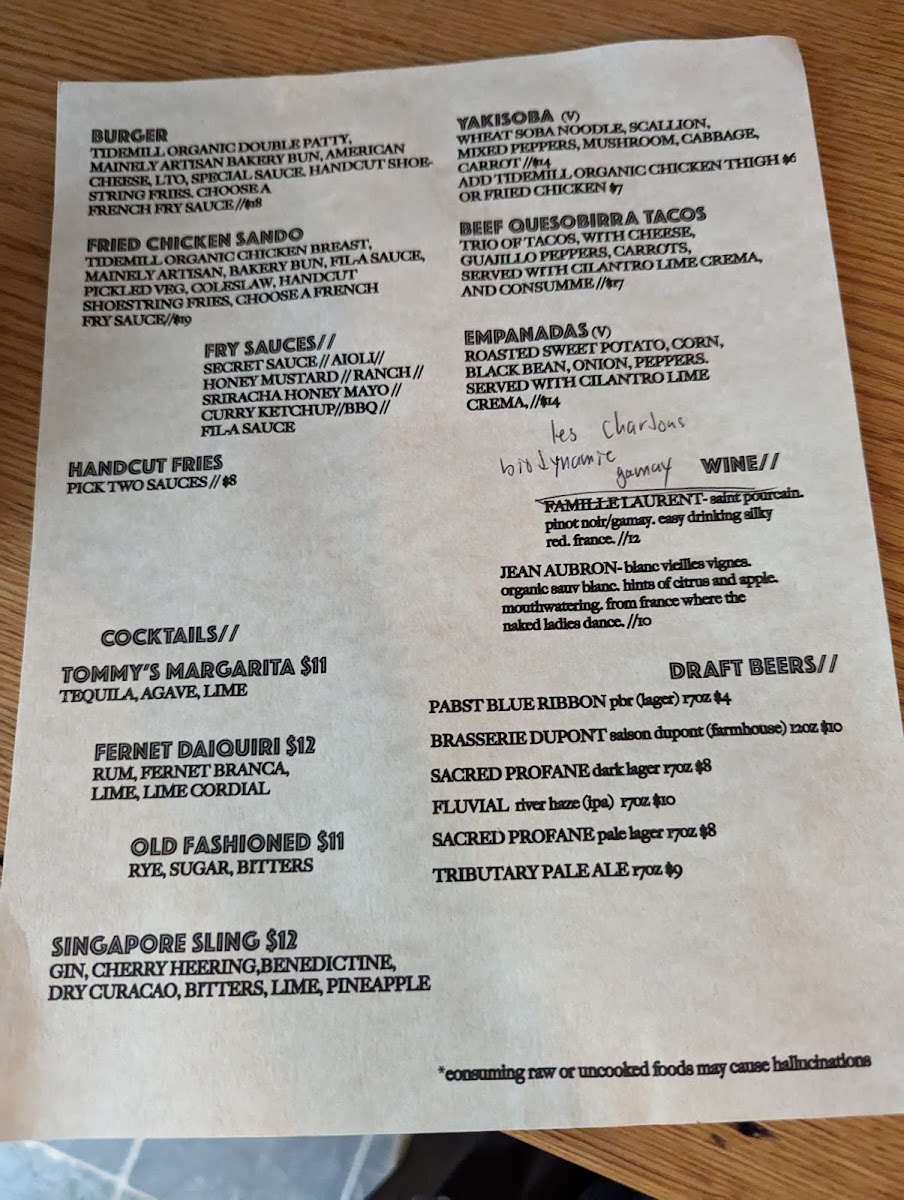 BURGER
TIDEMILL ORGANIC DOUBLE PATTY,
MAINELY ARTISAN BAKERY BUN, AMERICAN
CHEESE, LTO, SPECIAL SAUCE. HANDCUT SHOE-
STRING FRIES. CHOOSE A
FRENCH FRY SAUCE //$18
FRIED CHICKEN SANDO
TIDEMILL ORGANIC CHICKEN BREAST,
MAINELY ARTISAN, BAKERY BUN, FIL-A SAUCE,
PICKLED VEG, COLESLAW, HANDCUT
SHOESTRING FRIES, CHOOSE A FRENCH
FRY SAUCE//$19
FRY SAUCES//
SECRET SAUCE // AIOLI//
HONEY MUSTARD // RANCH //
SRIRACHA HONEY MAYO //
CURRY KETCHUP//BBQ //
FIL-A SAUCE
HANDCUT FRIES
PICK TWO SAUCES // $8
COCKTAILS//
TOMMY'S MARGARITA $11
TEQUILA, AGAVE, LIME
FERNET DAIQUIRI $12
RUM, FERNET BRANCA,
LIME, LIME CORDIAL
OLD FASHIONED $11
RYE, SUGAR, BITTERS
SINGAPORE SLING $12
GIN, CHERRY HEERING,BENEDICTINE,
DRY CURACAO, BITTERS, LIME, PINEAPPLE
YAKISOBA (V)
WHEAT SOBA NOODLE, SCALLION,
MIXED PEPPERS, MUSHROOM, CABBAGE,
CARROT //$14
ADD TIDEMILL ORGANIC CHICKEN THIGH $6
OR FRIED CHICKEN $7
BEEF QUESOBIRRA TACOS
TRIO OF TACOS, WITH CHEESE,
GUAJILLO PEPPERS, CARROTS,
SERVED WITH CILANTRO LIME CREMA,
AND CONSUMME //$17
EMPANADAS (V)
ROASTED SWEET POTATO, CORN,
BLACK BEAN, ONION, PEPPERS.
SERVED WITH CILANTRO LIME
CREMA, //$14
les chardons
biodynamic
gamay
WINE//
FAMILLE LAURENT- saint pourcain.
pinot noir/gamay. easy drinking silky
red. france. //12
JEAN AUBRON- blanc vieilles vignes.
organic sauv blanc. hints of citrus and apple.
mouthwatering. from france where the
naked ladies dance. //10
DRAFT BEERS//
PABST BLUE RIBBON pbr (lager) 17oz $4
BRASSERIE DUPONT saison dupont (farmhouse) 12oz $10
SACRED PROFANE dark lager 17oz $8
FLUVIAL river haze (ipa) 17oz $10
SACRED PROFANE pale lager 17oz $8
TRIBUTARY PALE ALE 17oz $9
*consuming raw or uncooked foods may cause hallucinations